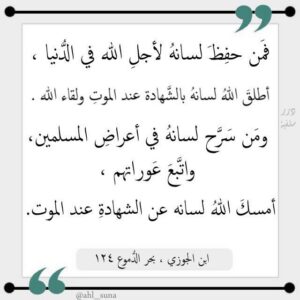 فمَن حفِظَ لسانهُ لأجلِ الله في الدُّنيا ،
أطلقَ اللهُ لسانهُ بالشَّهادة عند الموتِ ولقاء الله .
ومَن سَرَّح لسانهُ في أعراضِ المسلمين،
واتَّبعَ عَوراتهم ،
أمسكَ اللهُ لسانه عن الشهادةِ عند الموت.
ابن الجوزي ، بحر الدُّموع ١٢٤
@ahl_suna